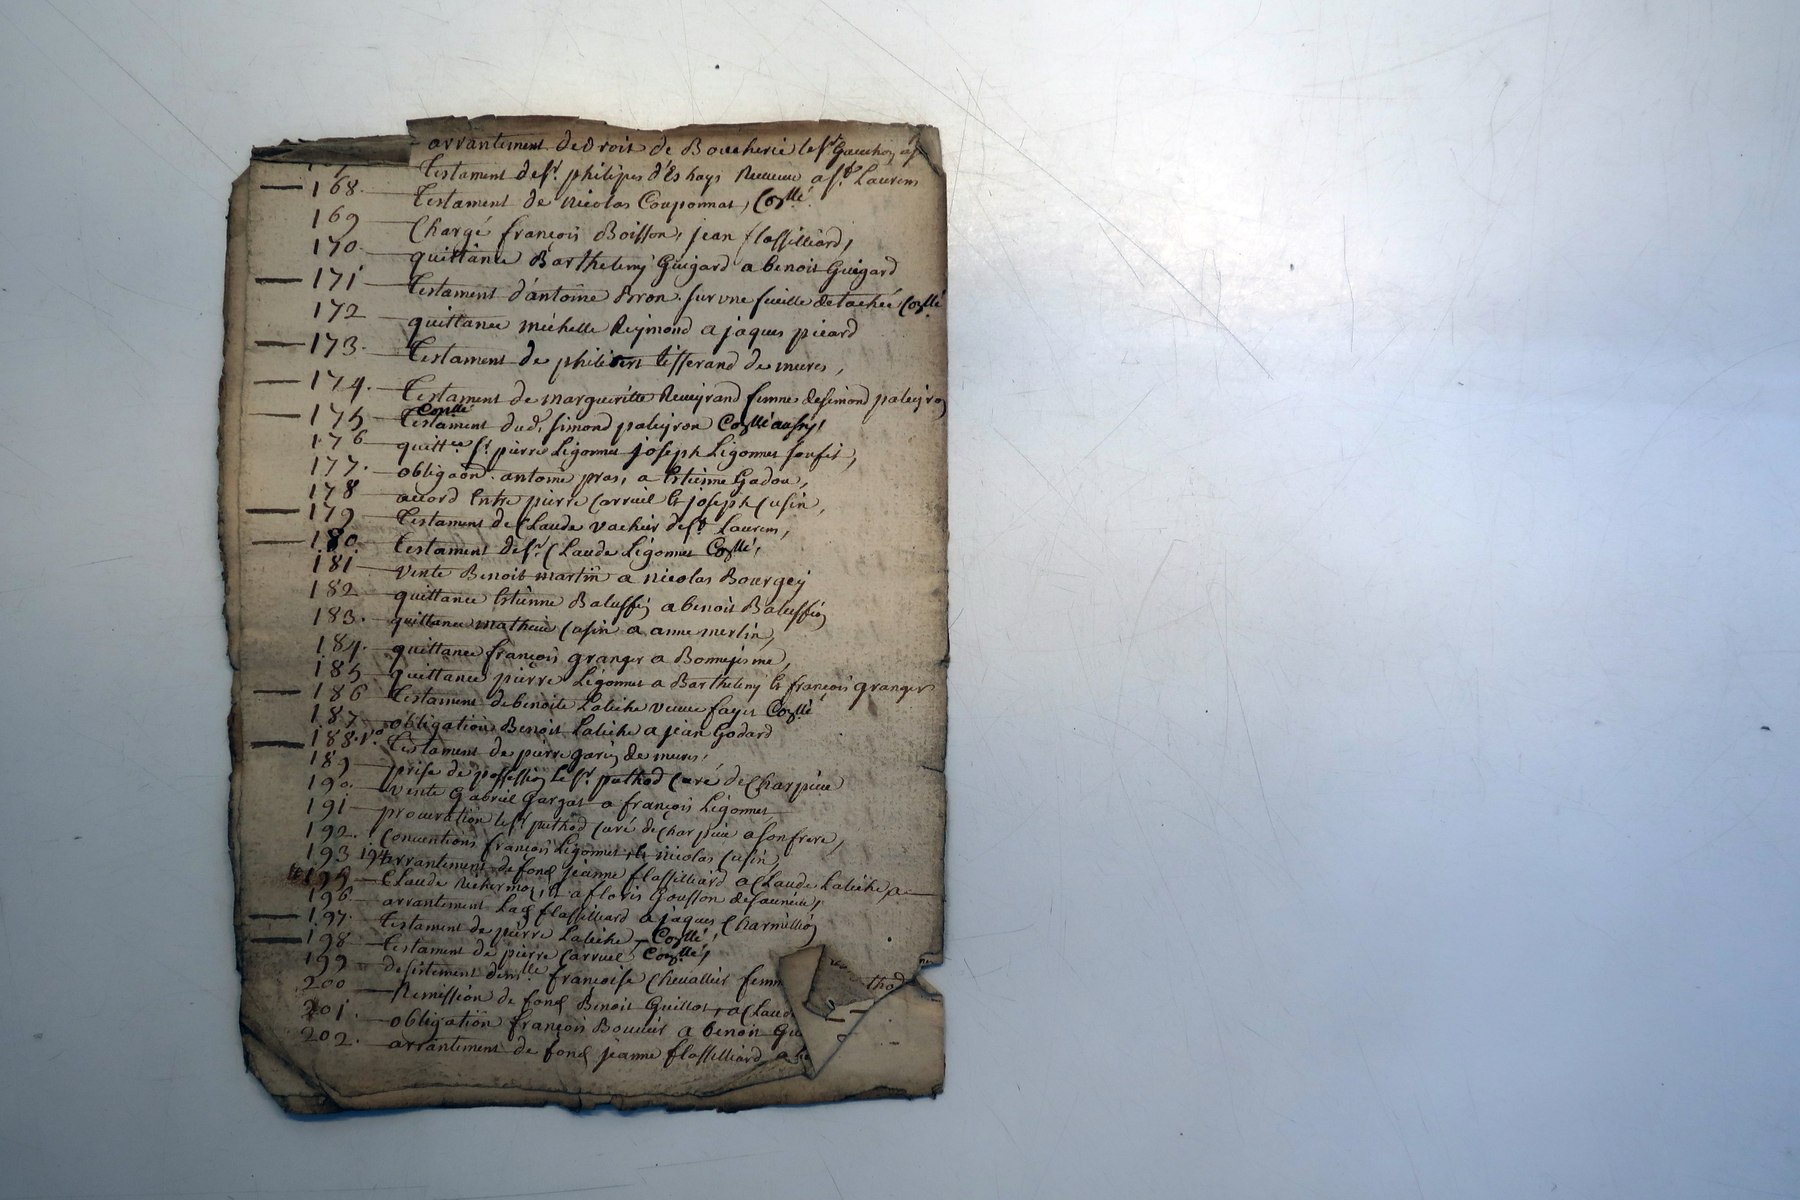 arrantement de droit de Boucherie le Sr
168. Testament de Sr. philipes d'Eshays a St. Laurens
169 Testament de nicolas Couponnas, Coʒllé
170. Chargé françois Boisson, jean flassilliard,
quittance Barthelemy Guigard a benoit Guigard
171 Testament d'antoine Bron sur une fueille detachée Coʒllé
172 quittance michelle Reymond a jaques picard
173. Testament de philibert tisserand de mures,
174. Testament de margueritte Reveyrand femme de simond paleyron
175 Testament dud. simond paleyron Coʒllé aussy,
176 quitt.ce Sr. pierre Ligonnet joseph Ligonnet son fis,
177. obligaōn. antoine pras, a Estienne Gadou,
178 accord Entre pierre Carruil & joseph Cusin,
179 Testament de Claude vachier de St Laurens,
180. Testament de Sr. Claude Ligonnet Coʒllé,
181 vente Benoit martin a nicolas Bourgey
182 quittance Estienne Baluffin a benoit Baluffin
183. quittance mathieu Cusin a anne merlin,
184. quittance françois granger a
185. quittance pierre Ligonnet a Barthelemy & françois granger
186 Testament de benoite Lateihe veuve fayet Coʒllé
187 obligation Benoit Lateihe a jean Godard
188. vo Testament de pierre garin de mures,
189 prise de possession le Sr. pathod Curé de Charpieu
190. vente Gabriel Gargat a françois Ligonnet
191 procuration le Sr pathod Curé de Charpieu a son frere,
192. Conventions françois Ligonnet & nicolas Cusin,
193 194 arrantement de fond jeanne flassilliard a Claude Lateihe
195 Claude a floris Gousson
196 arrantement flassilliard a jaques Charmillion
197. Testament de pierre Lateihe Coʒllé,
198 Testament de pierre Carruil Coʒllé,
199 desistement demlle françoise Chevallier femm thod
200 Remission de fond Benoit Guillot, a Claud
201. obligation françois Bouvier a benoit Gu
202. arrantement de fond jeanne flassilliard a